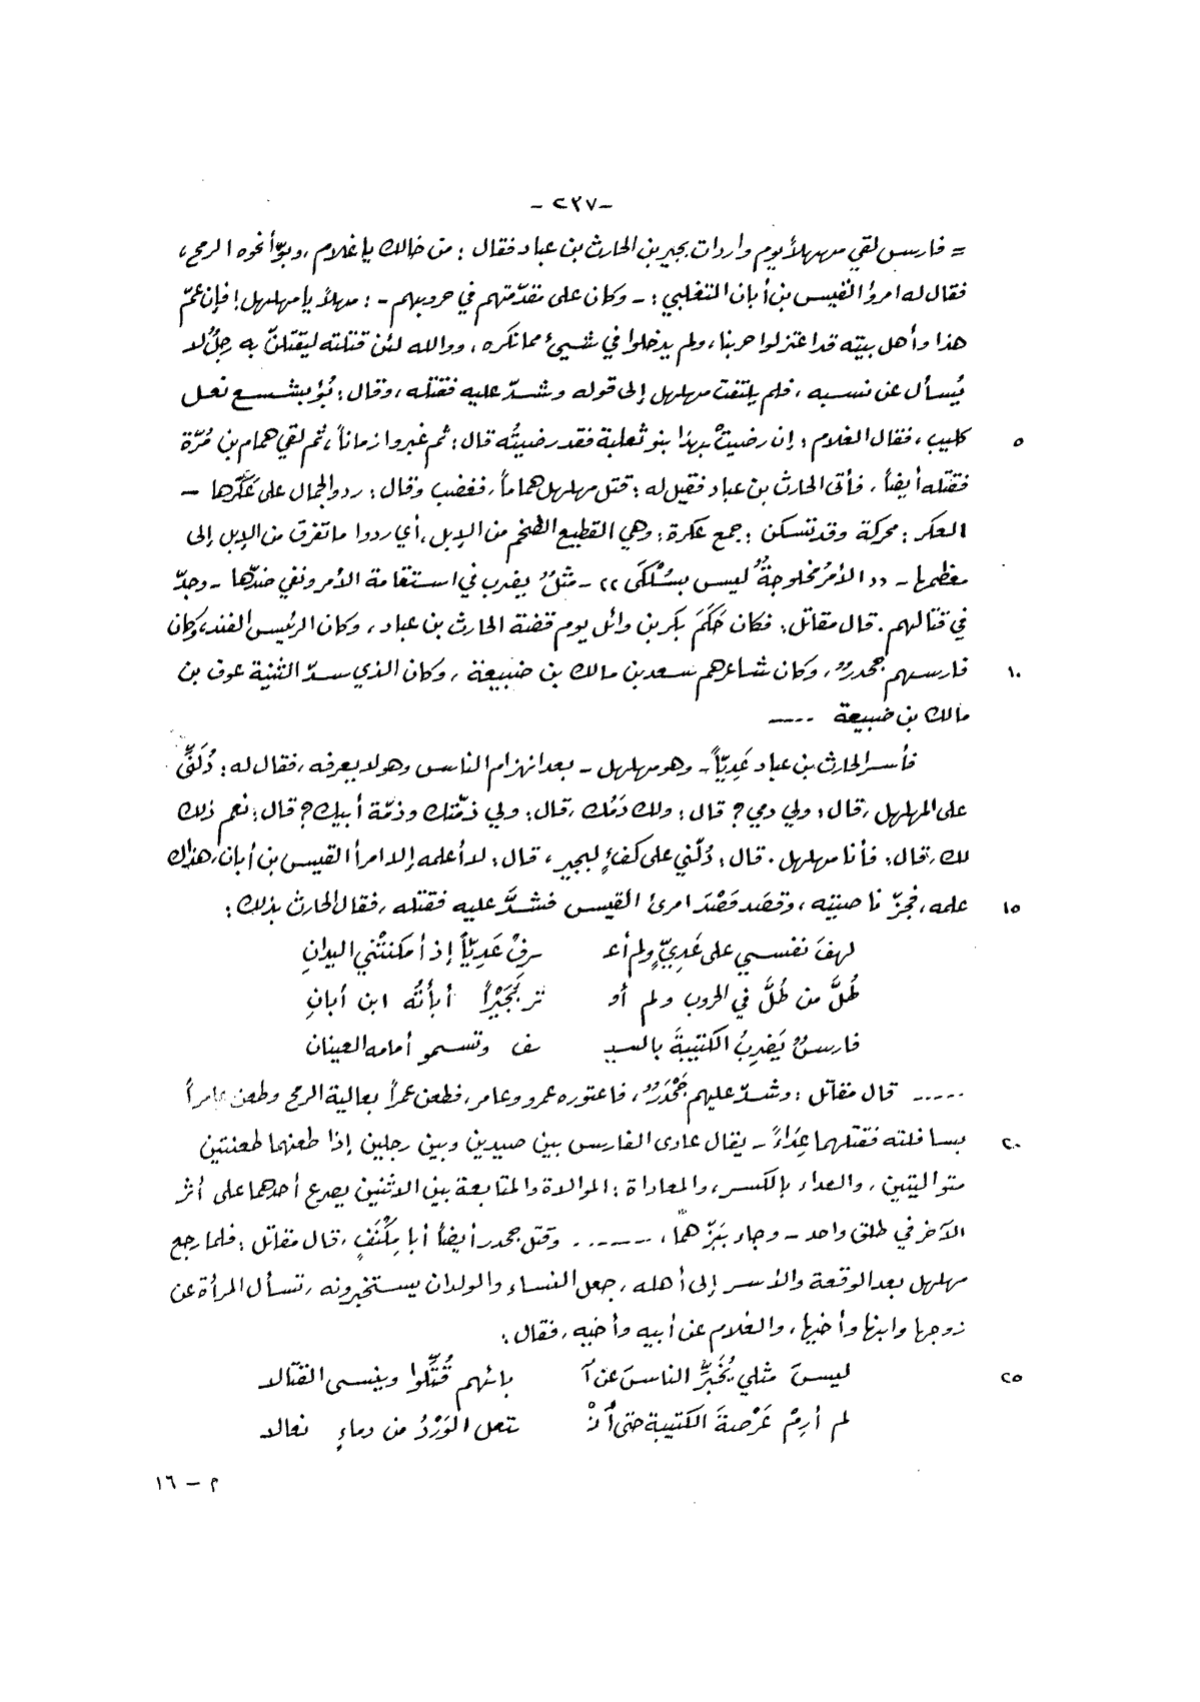 -٢٣٧-
= فارس لقي مهلهلاً يوم واردات بجير بن الحارث بن عباد فقال : من خالك يا غلام ، وبوّأ نحوه الرمح ،
فقال له امرؤ القيس بن أبان التغلبي : - وكان على مقدّمتهم في حروبهم - : مهلاً يا مهلهل ! فإن عمّ
هذا وأهل بيته قد اعتزلوا حربنا ، ولم يدخلوا في شيئ مما نكره ، ووالله لئن قتلته ليقتلنّ به رجلٌ لا
يُسأل عن نسبه ، فلم يلتفت مهلهل إلى قوله وشدّ عليه فقتله ، وقال : بُؤ بشسع نعل
٥ كليب ، فقال الغلام : إن رضيتْ بهذا بنو ثعلبة فقد رضيتُه قال : ثم غبروا زماناً ، ثم لقي همام بن مُرّة
فقتله أيضاً ، فأتى الحارث بن عباد فقيل له : قتل مهلهل هماماً ، فغضب وقال : ردو الجمال على عَكَرها -
العكر : محركة وقد تسكن : جمع عكرة : وهي القطيع الضخم من الإبل ، أي ردوا ما تفرق من الإبل إلى
معظمها - ,, الأمرُ مخلوجةٌ ليس بسُلْكَى ,, - مثلٌ يضرب في استقامة الأمر ونفي ضدّها - وجدّ
في قتالهم . قال مقاتل : فكان حَكَمَ بكر بن وائل يوم قضة الحارث بن عباد ، وكان الرئيس الفند ، وكان
١٠ فارسهم جحدرٌ ، وكان شاعرهم سعد بن مالك بن ضبيعة ، وكان الذي سدّ الثنية عوف بن
مالك بن ضبيعة -----
فأسر الحارث بن عباد عَدِيّاً - وهو مهلهل - بعد انهزام الناس وهو لا يعرفه ، فقال له : دُلَنّي
على المهلهل ، قال : ولي دمي ؟ قال : ولك دَمُك ، قال : ولي ذمّتك وذمّة أبيك ؟ قال : نعم ذلك
لك ، قال : فأنا مهلهل . قال : دُلّني على كفءٍ لبجير ، قال : لا أعلمه إلا امرأ القيس بن أبان ، هذاك
١٥ علمه ، فجزّ ناصيته ، وقصَد قَصْدَ امرئ القيس فشدَّ عليه فقتله ، فقال الحارث بذلك :
لهفَ نفسي على عَدِيّ ولم أعـ ـرفْ عَدِيّاً إذ أمكنتْني اليدانِ
طُلَّ من طُلَّ في الحروب ولم أو تر بُجَيْراً أبأتُه ابن أبانِ
فارسٌ يَضرِبُ الكتيبةَ بالسيـ ـف وتسمو أمامه العينان
----- قال مقاتل : وشدّ عليهم جَحْدَرٌ ، فاعتوره عمرو وعامر ، فطعن عمراً بعالية الرمح وطعن عامراً
٢٠ بسافلته فقتلهما عِدَاءً - يقال عادى الفارس بين صيدين وبين رجلين إذا طعنهما طعنتين
متواليتين ، والعداء بالكسر ، والمعاداة : الموالاة والمتابعة بين الاثنين يصرع أحدهما على أثر
الآخر في طلق واحد - وجاء ببَزّهما ، ------ وقتل جحدر أيضاً أبا مِكْنَفٍ ، قال مقاتل : فلما رجع
مهلهل بعد الوقعة والأسر إلى أهله ، جعل النساء والولدان يستخبرونه ، تسأل المرأة عن
زوجها وابنها وأخيها ، والغلام عن أبيه وأخيه ، فقال :
٢٥ ليسَ مثلي يُخَبِّرُ الناسَ عن آ بائهم قُتِّلوا وينسى القتالا
لم أرِمْ عَرْصةَ الكتيبة حتى أنْـ ـتعل الوَرْدُ من دماءٍ نعالا
م - ١٦